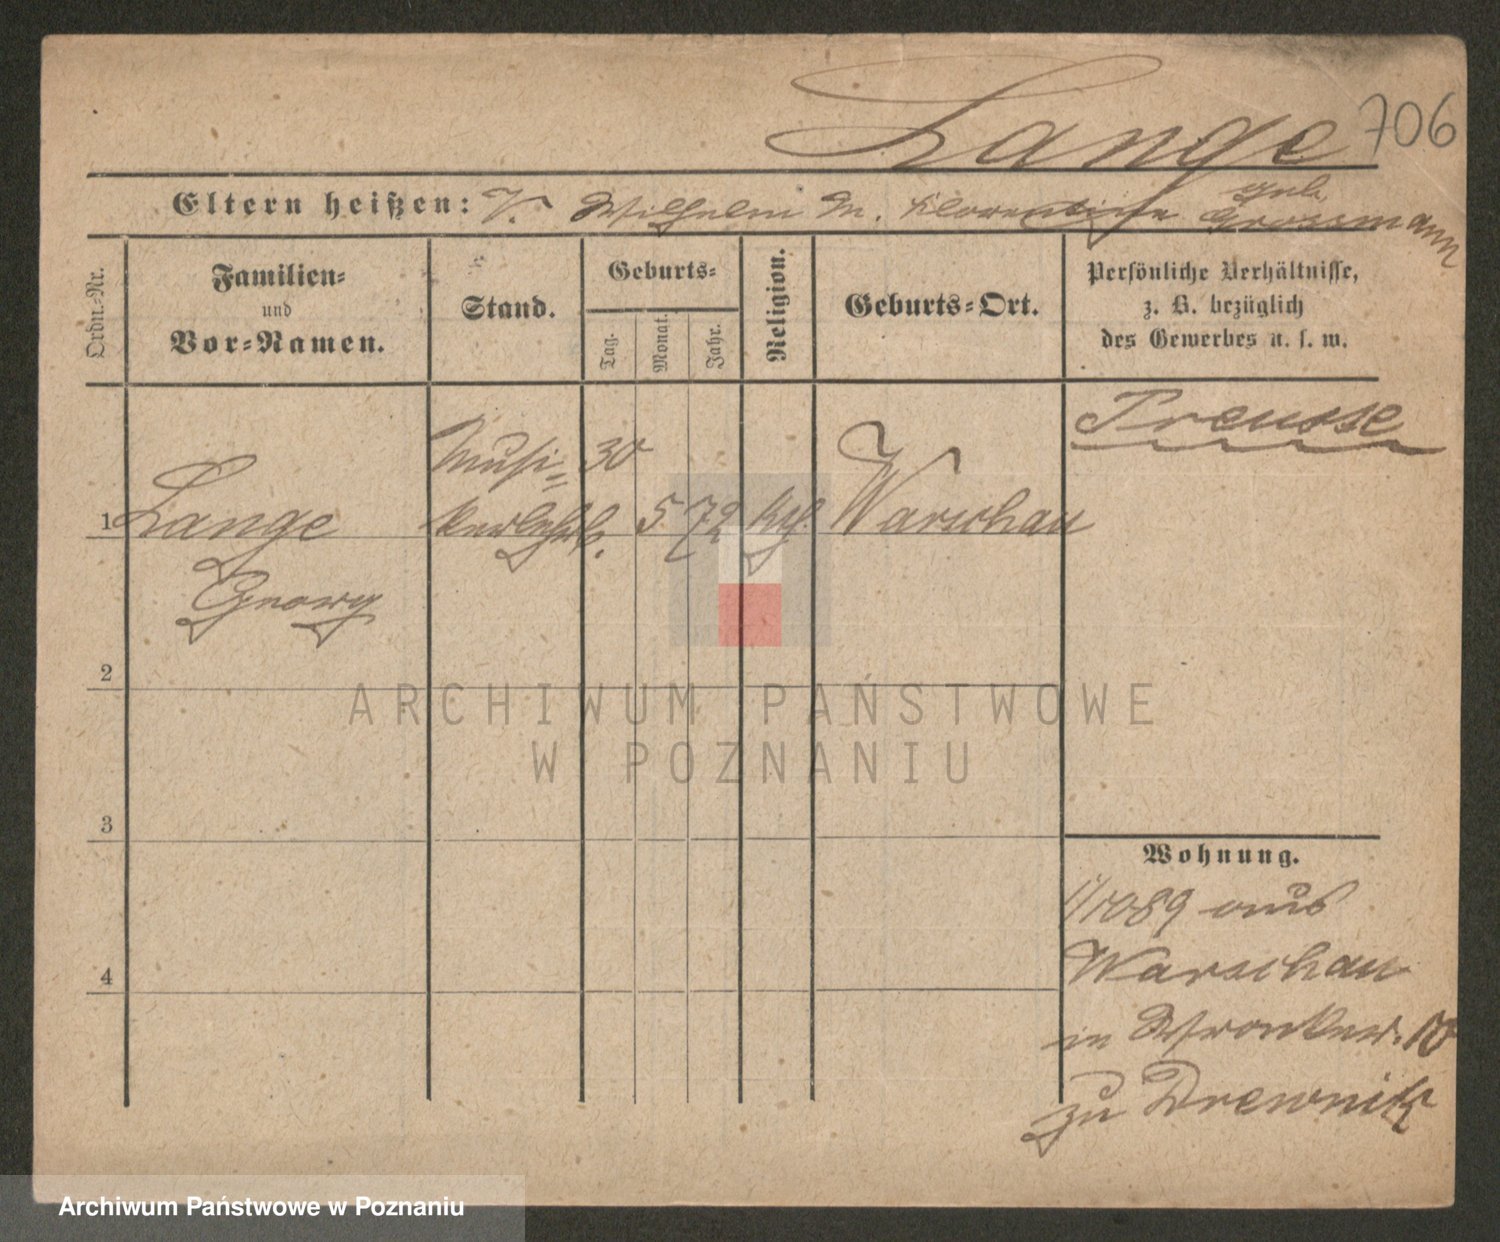 Lange 706
Eltern heißen: V. Wilhelm M. Florentine geb. Grossmann
Ordn.-Nr.
Familien-
und
Vor-Namen.
Stand.
Geburts-
Tag.
Monat.
Jahr.
Religion.
Geburts-Ort.
Persönliche Verhältnisse,
z. B. bezüglich
des Gewerbes u. s. w.
Preusse
Musi-
1 Lange kerlehrl. 30 5 72 kth. Warschau
Georg
2
ARCHIWUM PAŃSTWOWE
W POZNANIU
3
Wohnung.
1/10 89 aus
Warschau
4
in Wronker. 10
zu Drewnik
Archiwum Państwowe w Poznaniu